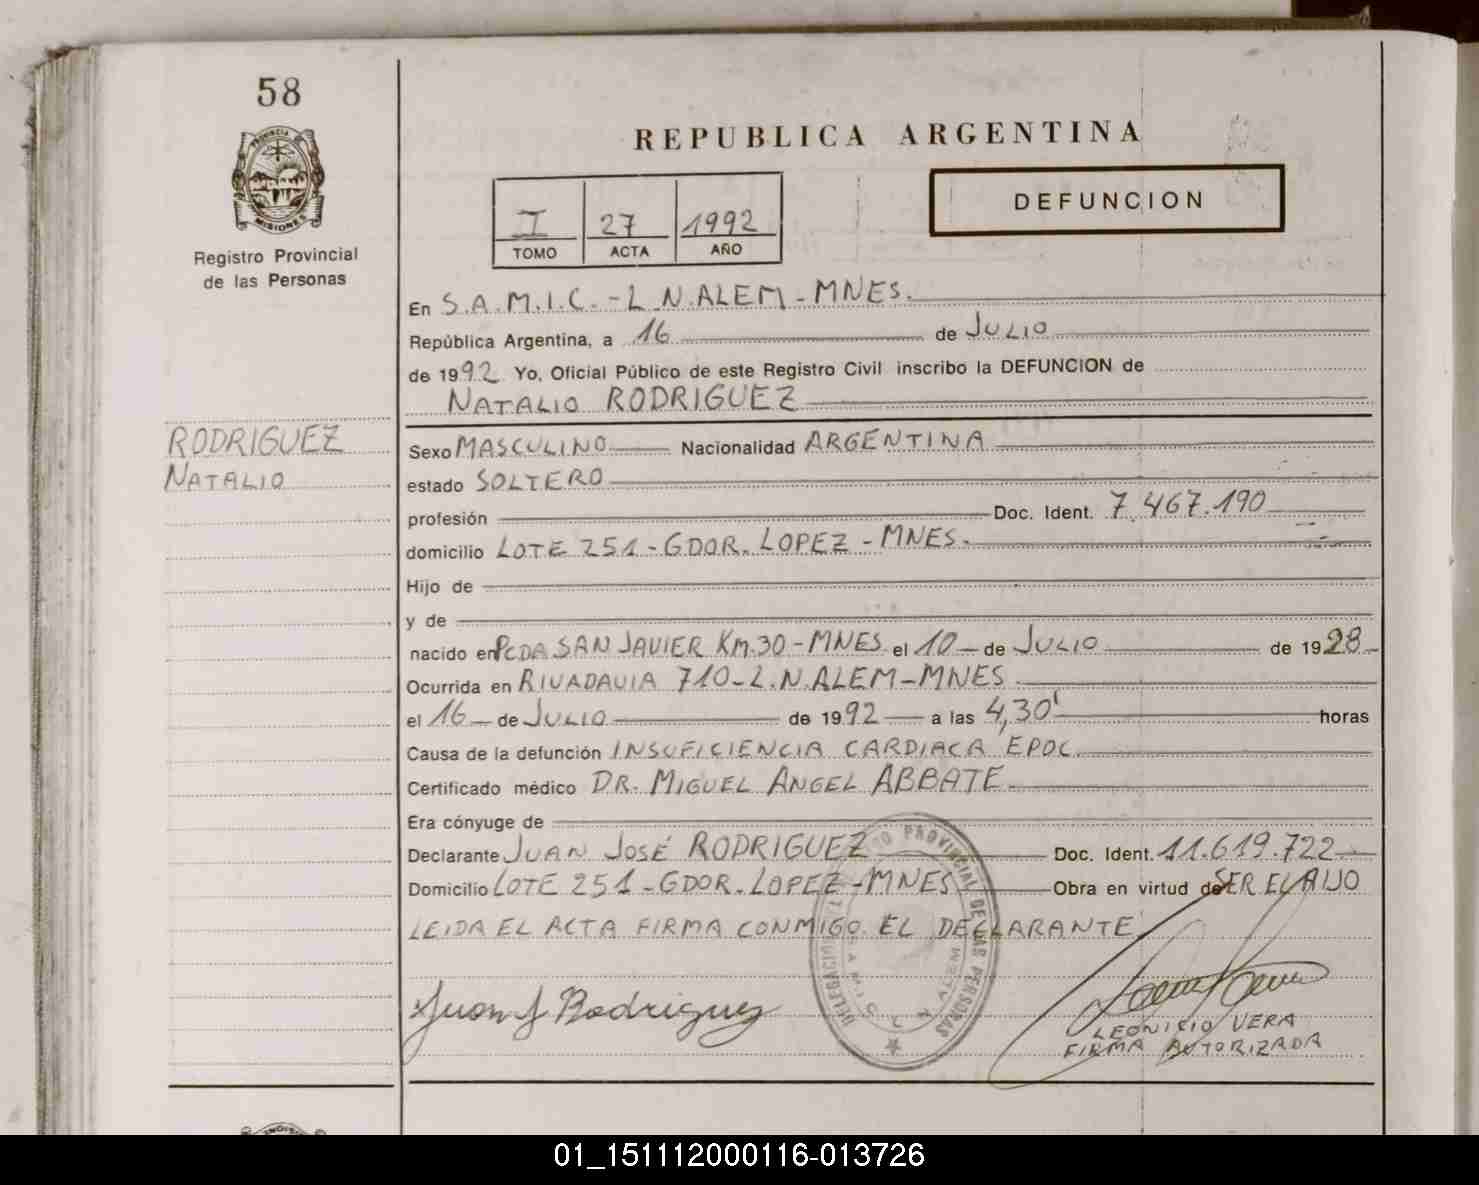 58
PROVINCIA
MISIONES
Registro Provincial
de las Personas
REPUBLICA ARGENTINA
DEFUNCION
I 27 1992
TOMO ACTA AÑO
En S.A.M.I.C. - L.N.ALEM - MNES.
República Argentina, a 16 de JULIO
de 1992 Yo, Oficial Público de este Registro Civil inscribo la DEFUNCION de
NATALIO RODRIGUEZ
RODRIGUEZ
NATALIO
Sexo MASCULINO Nacionalidad ARGENTINA
estado SOLTERO
profesión Doc. Ident. 7.467.190
domicilio LOTE 251 - GDOR. LOPEZ - MNES.
Hijo de
y de
nacido en PCDA SAN JAVIER KM.30 - MNES. el 10 de JULIO de 1928
Ocurrida en RIVADAVIA 710 - L.N.ALEM - MNES
el 16 de JULIO de 1992 a las 4,30' horas
Causa de la defunción INSUFICIENCIA CARDIACA EPOC.
Certificado médico DR. MIGUEL ANGEL ABBATE
Era cónyuge de
Declarante JUAN JOSÉ RODRIGUEZ Doc. Ident. 11.619.722
Domicilio LOTE 251 - GDOR. LOPEZ - MNES Obra en virtud de SER EL HIJO
LEIDA EL ACTA FIRMA CONMIGO EL DECLARANTE
Juan J Rodriguez
PROVINCIAL DE LAS PERSONAS
LEONICIO VERA
FIRMA AUTORIZADA
01_151112000116-013726